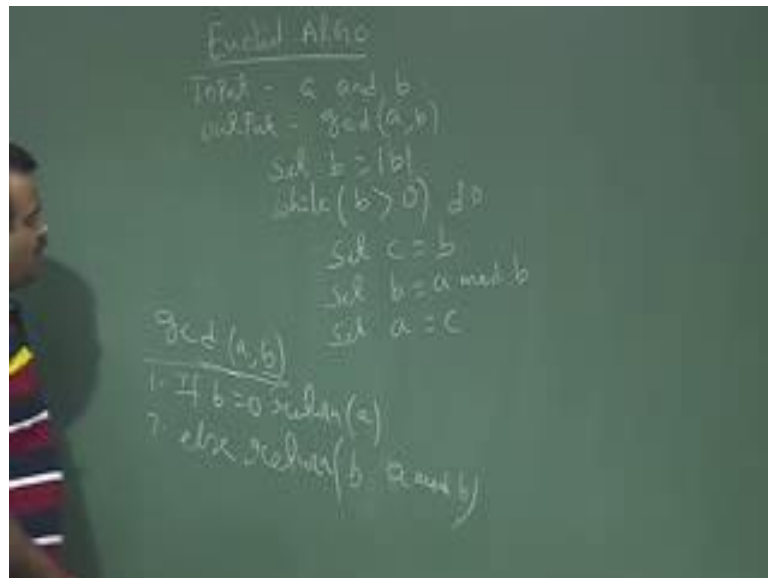 Euclid ALGO
Input - a and b
output - gcd(a,b)
set b = |b|
while (b > 0) do
set c = b
set b = a mod b
set a = c
gcd(a,b)
1. If b=0 return(a)
2. else return(b, a mod b)